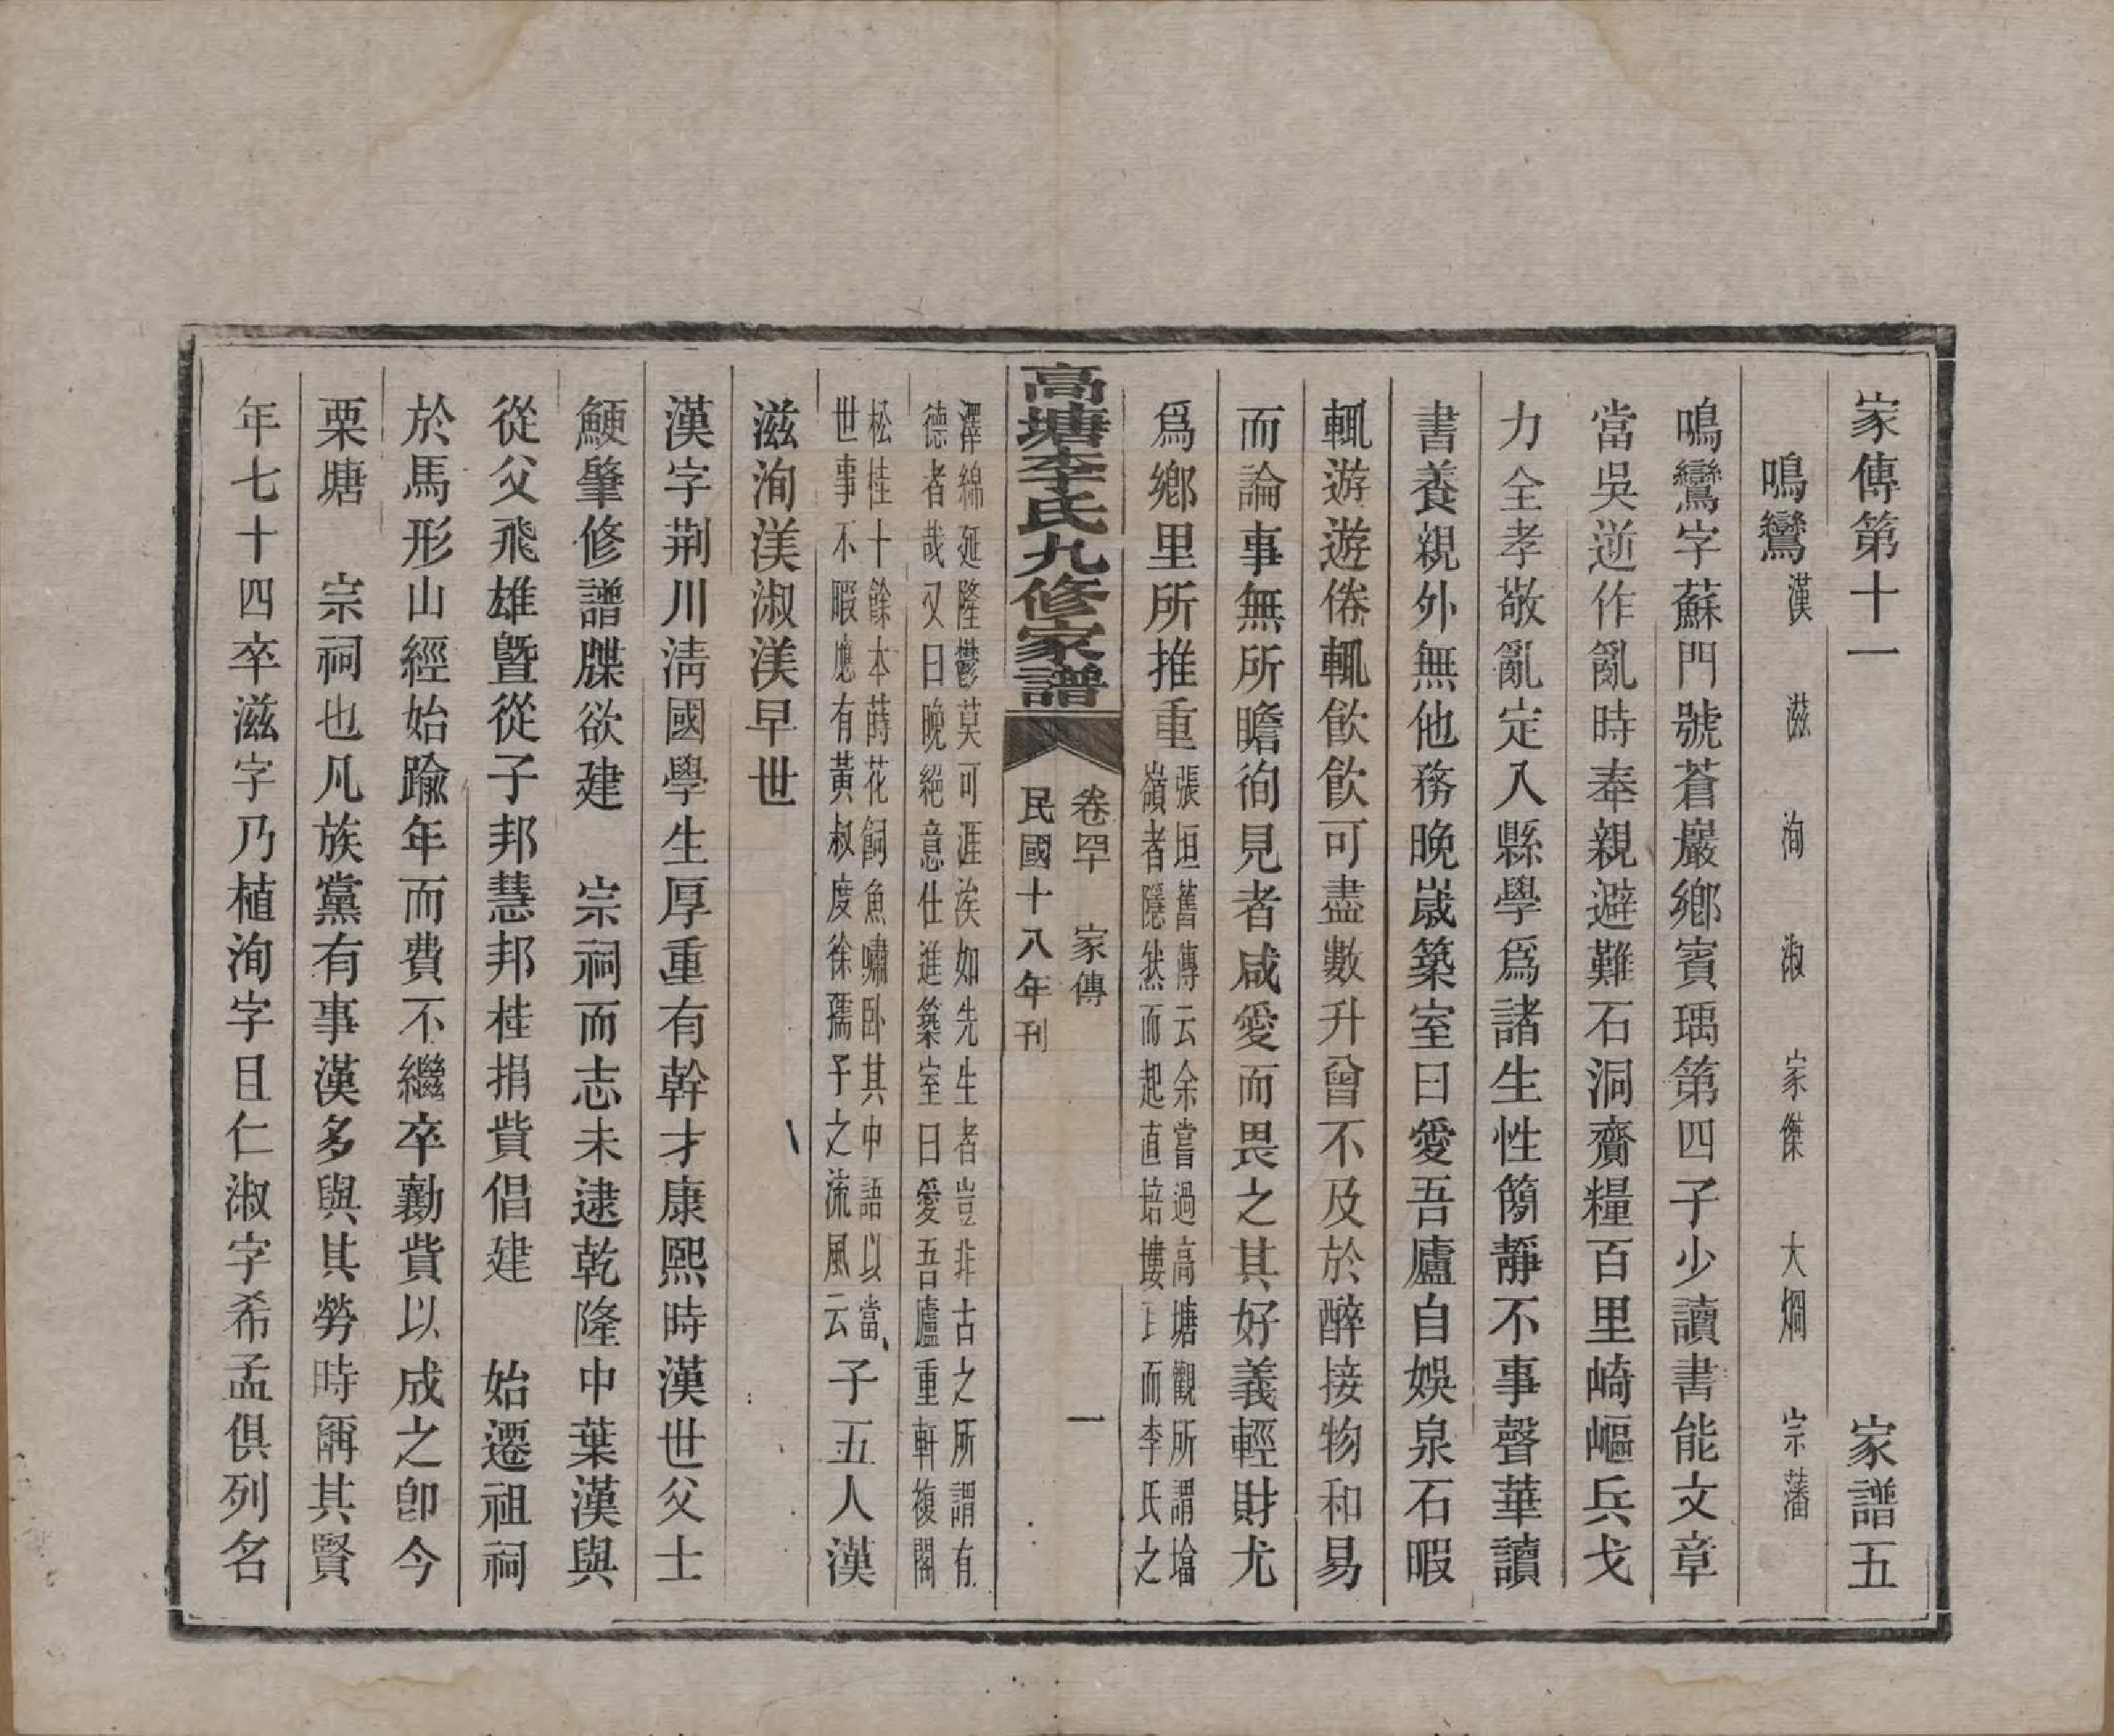 家傳第十一　家譜五
鳴鸞　漢　滋　洵　淑　家傑　大烱　宗藩
鳴鸞字蘇門號蒼巖鄉賓瑀第四子少讀書能文章
當吳逆作亂時奉親避難石洞齎糧百里崎嶇兵戈
力全孝敬亂定入縣學爲諸生性簡靜不事聲華讀
書養親外無他務晚歲築室曰愛吾廬自娛泉石暇
輒遊遊倦輒飮飮可盡數升曾不及於醉接物和易
而論事無所瞻徇見者咸愛而畏之其好義輕財尤
爲鄉里所推重
張垣舊傳云余嘗過高塘觀所謂壋
嶺者隱然而起直培塿𠄌而李氏之
高塘李氏九修家譜
卷四　家傳　一
民國十八年刊
澤綿延隆鬱莫可涯涘如先生者豈非古之所謂有
德者哉又曰晚絕意仕進築室曰愛吾廬重軒複閣
松桂十餘本蒔花飼魚嘯臥其中語以當
世事不暇應有黃叔度徐孺子之流風云
子五人漢
滋洵渼淑渼早世
漢字荆川淸國學生厚重有幹才康熙時漢世父士
鯁肇修譜牒欲建　宗祠而志未逮乾隆中葉漢與
從父飛雄曁從子邦慧邦桂捐貲倡建　始遷祖祠
於馬形山經始踰年而費不繼卒勷貲以成之卽今
栗塘　宗祠也凡族黨有事漢多與其勞時稱其賢
年七十四卒滋字乃植洵字且仁淑字希孟俱列名